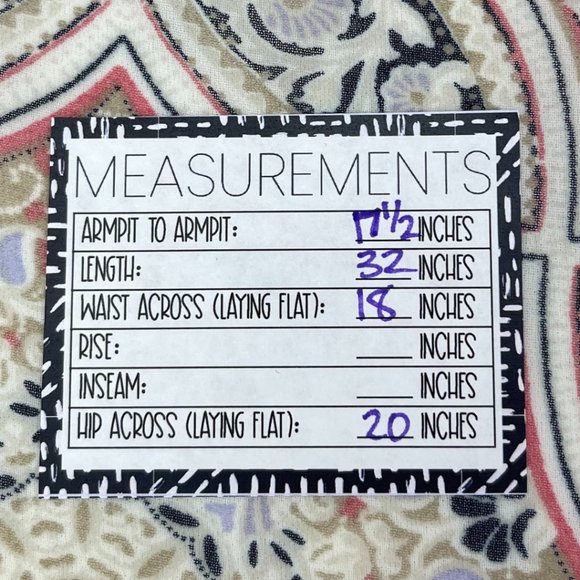 MEASUREMENTS
ARMPIT TO ARMPIT: 17 1/2 INCHES
LENGTH: 32 INCHES
WAIST ACROSS (LAYING FLAT): 18 INCHES
RISE: ___ INCHES
INSEAM: ___ INCHES
HIP ACROSS (LAYING FLAT): 20 INCHES